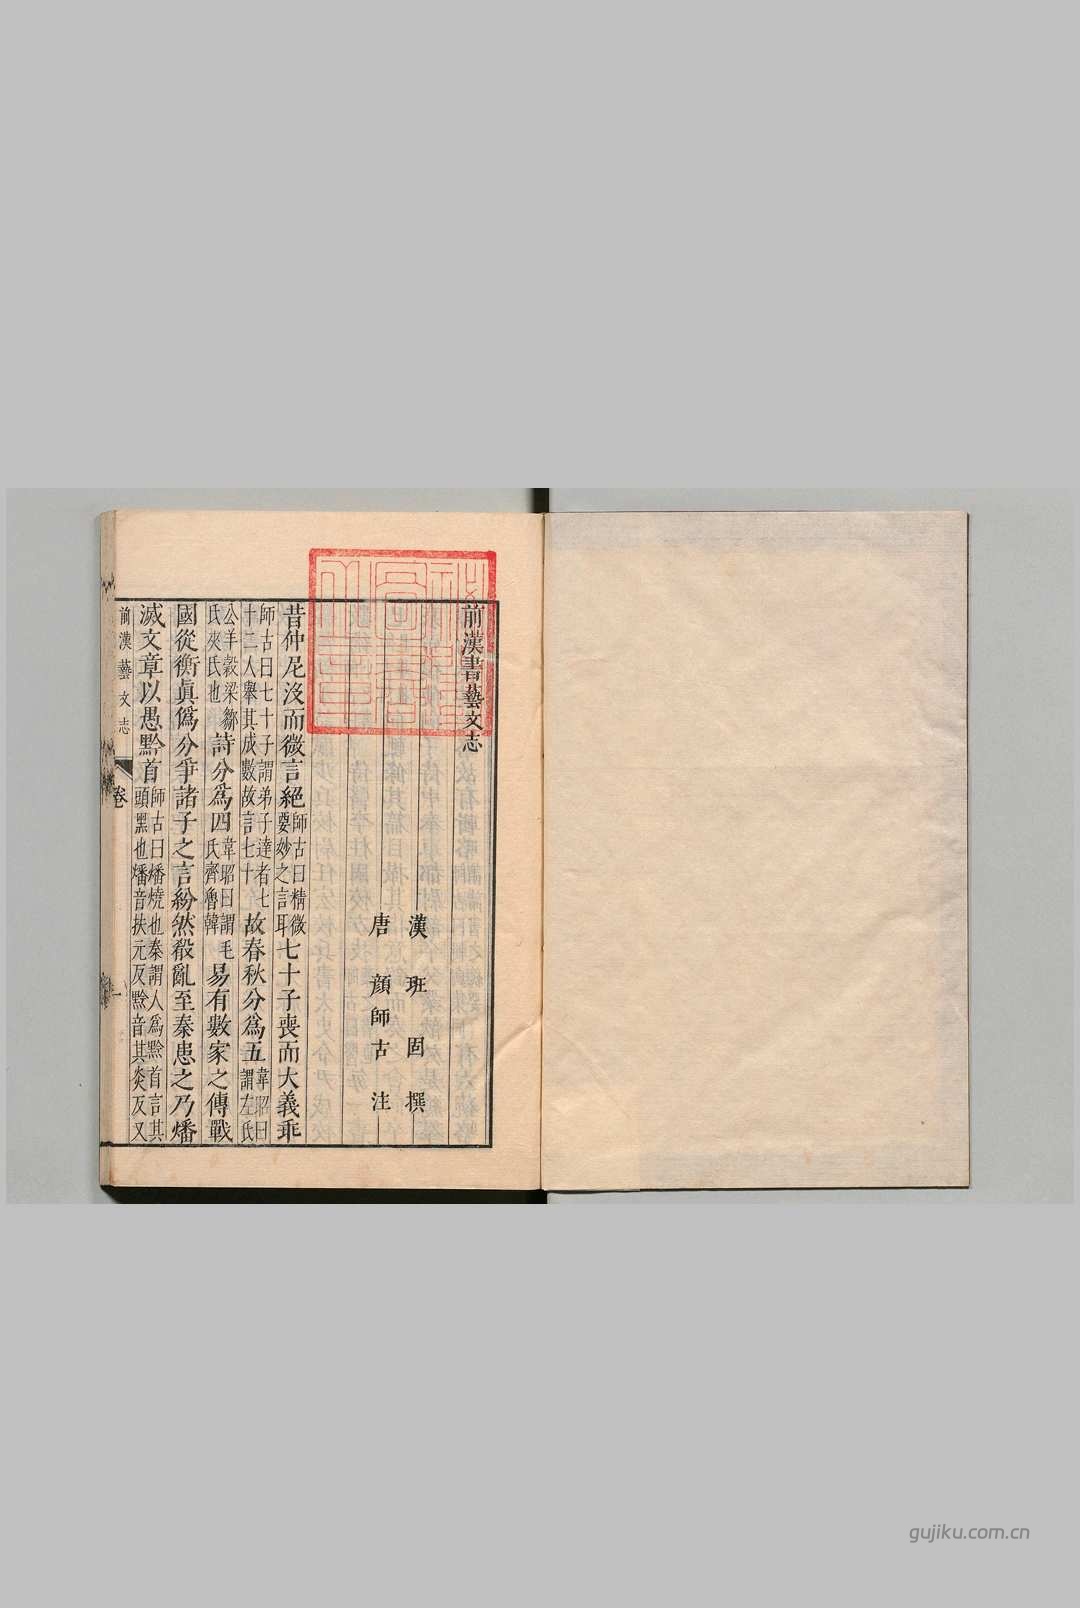 前漢書藝文志
漢 班 固 撰
唐 顏師古 注
昔仲尼沒而微言絕師古曰精微要妙之言耳七十子喪而大義乖
師古曰七十子謂弟子達者七十二人舉其成數故言七十故春秋分爲五韋昭曰謂左氏
公羊穀梁鄒氏夾氏也詩分爲四韋昭曰謂毛氏齊魯韓易有數家之傳戰
國從衡眞僞分爭諸子之言紛然殽亂至秦患之乃燔
滅文章以愚黔首師古曰燔燒也秦謂人爲黔首言其頭黑也燔音扶元反黔音其炎反又
前漢藝文志
卷
一
gujiku.com.cn